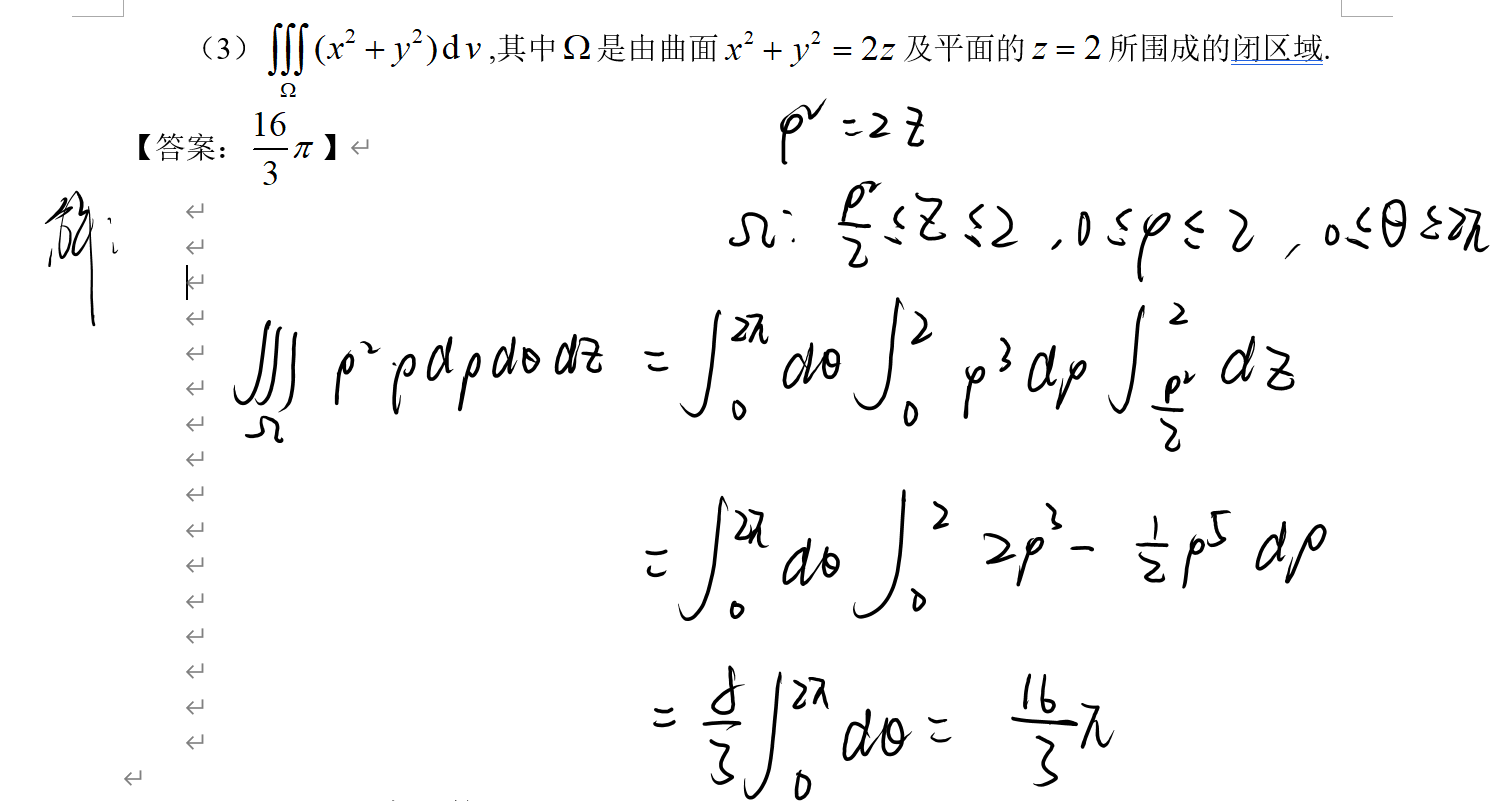 （3）∭_Ω (x² + y²)dv,其中 Ω 是由曲面 x² + y² = 2z 及平面的 z = 2 所围成的闭区域.
ρ² = 2z
【答案： 16/3 π 】
解：
Ω: ρ²/2 ≤ z ≤ 2 , 0 ≤ ρ ≤ 2 , 0 ≤ θ ≤ 2π
∭_Ω ρ² ρ dρ dθ dz = ∫_0^{2π} dθ ∫_0^2 ρ³ dρ ∫_{ρ²/2}^2 dz
= ∫_0^{2π} dθ ∫_0^2 2ρ³ - 1/2 ρ⁵ dρ
= 8/3 ∫_0^{2π} dθ = 16/3 π